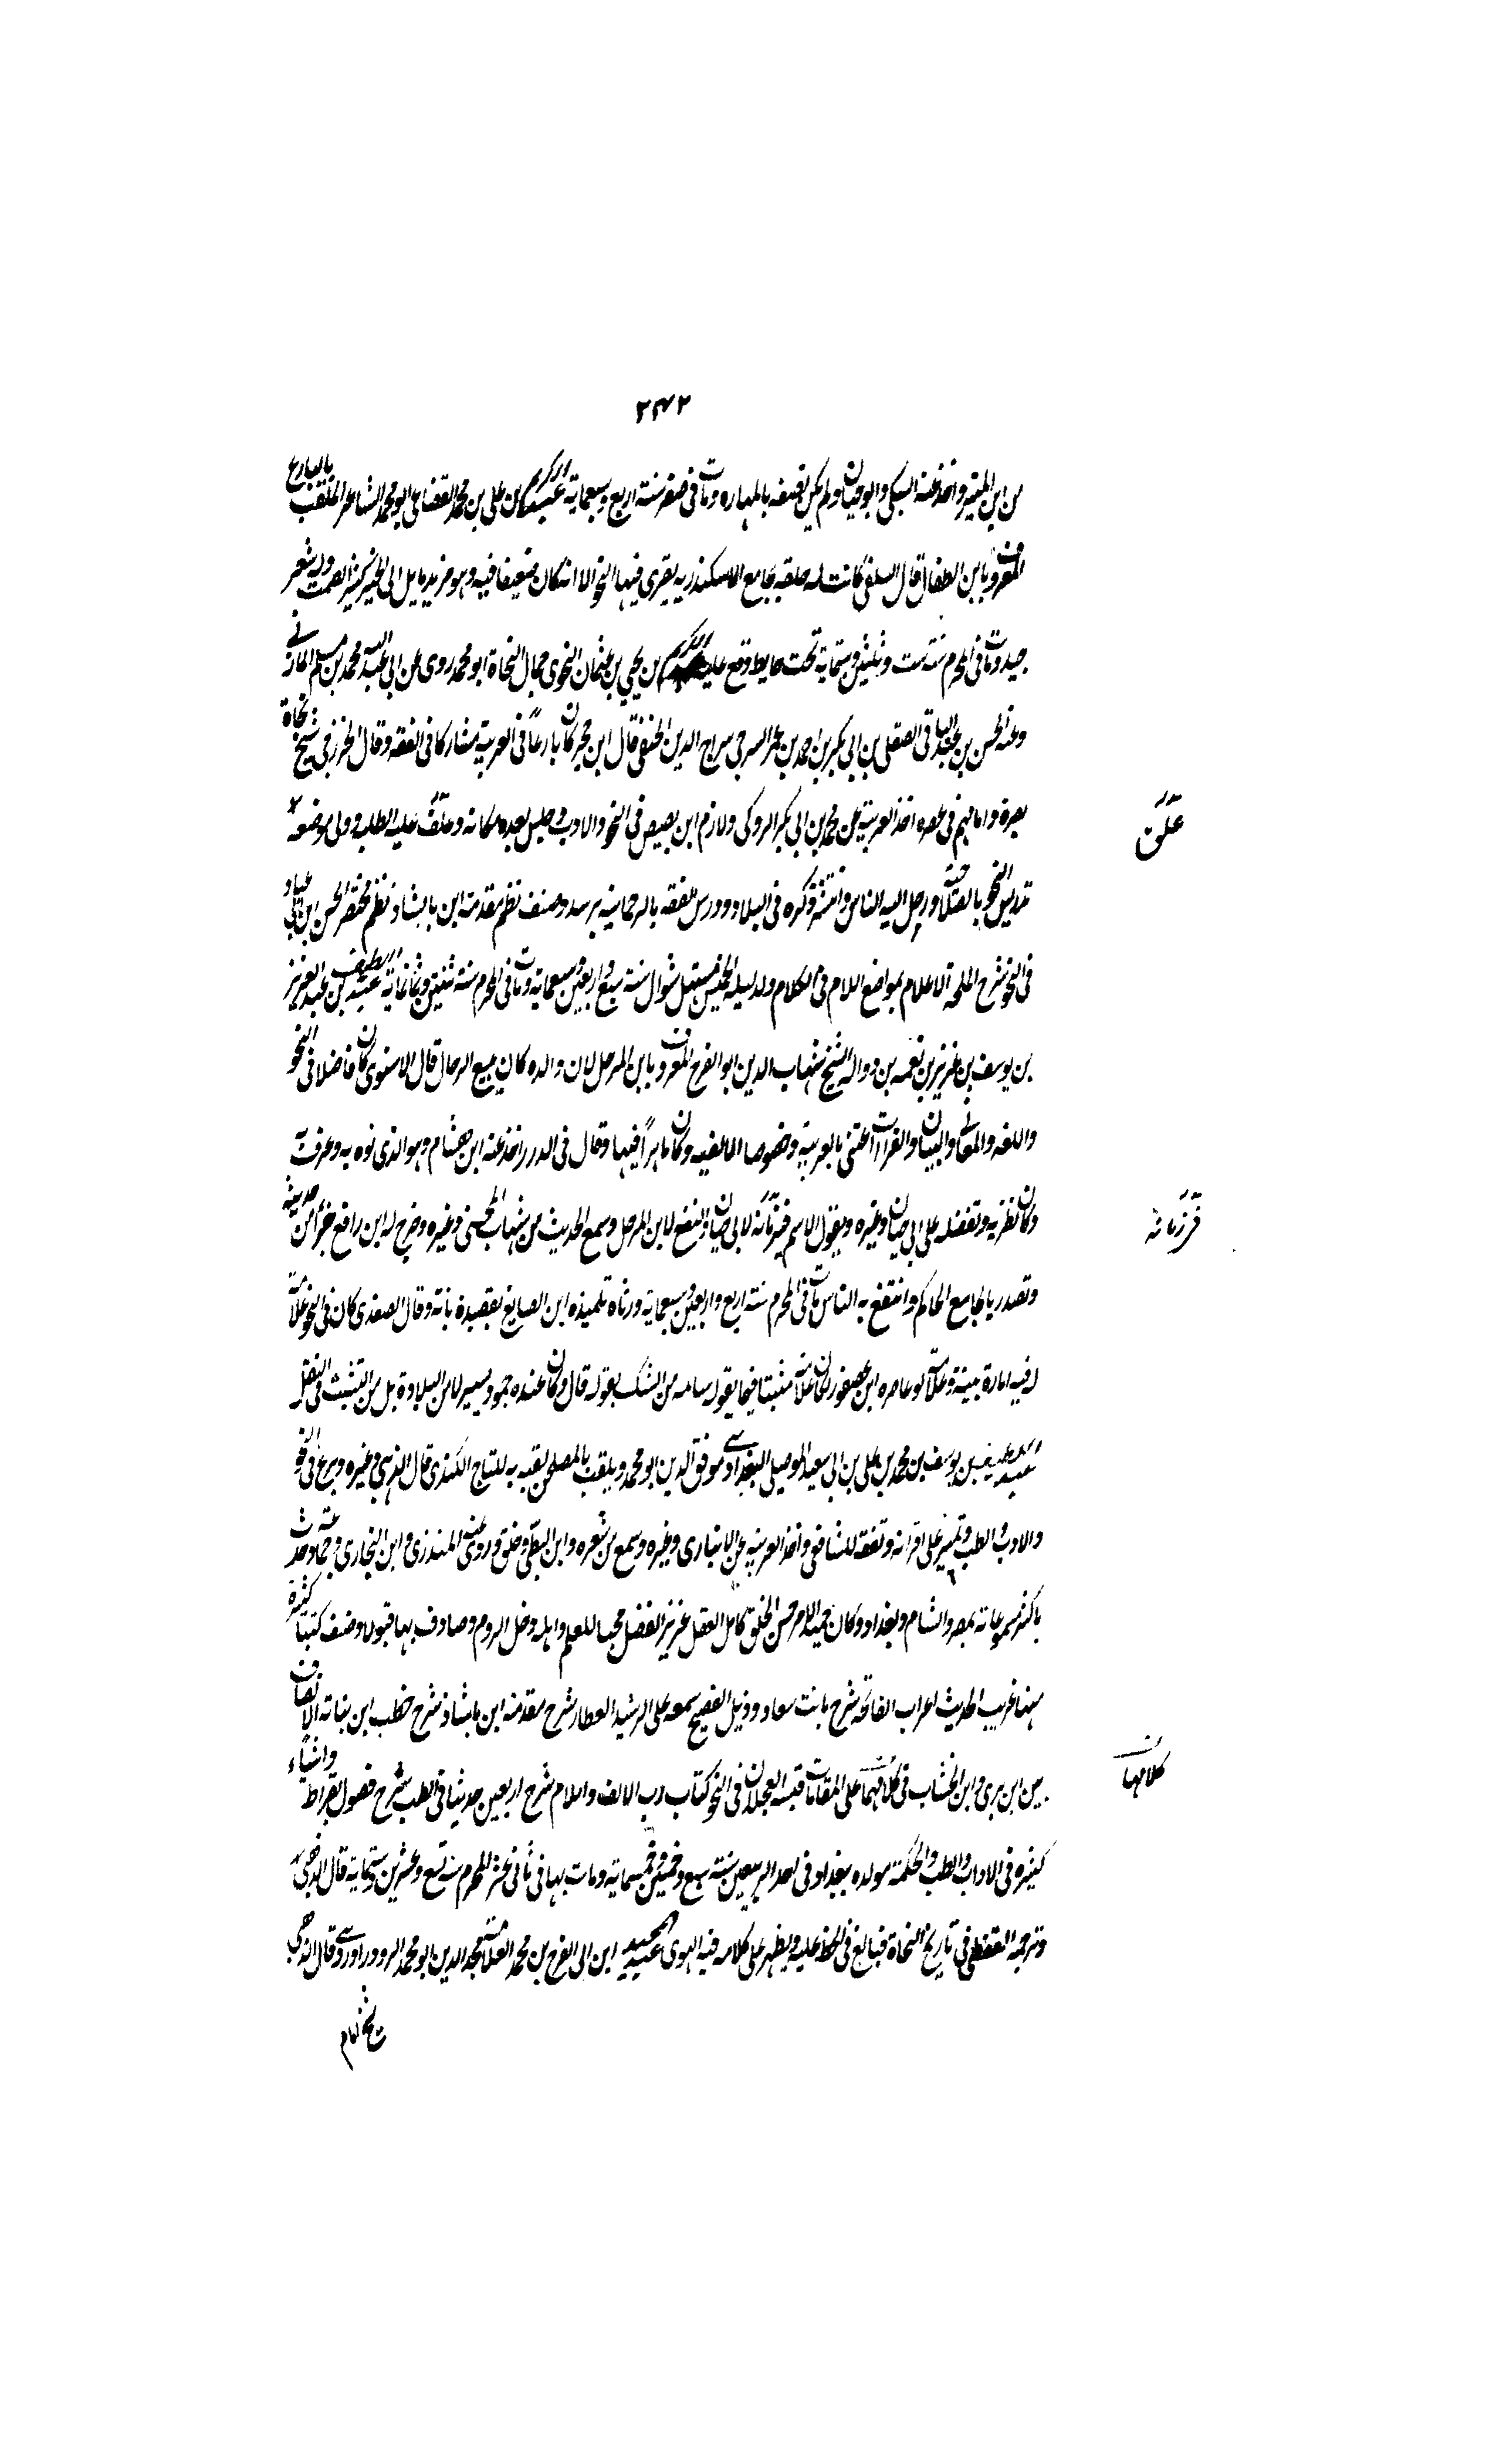 ٢٣٢
من ابن المنير واخذ عنه السبكى وابو حيان ولم يكن تصنيفه بالمهارة ومات فى صفر سنة اربع وسبعماية عبد الكريم بن على بن محمد القضاعى ابو محمد الشاعر الملقب بالبارع
المعروف بابن الطفال قال السلفى كانت له حلقه بجامع الاسكندريه يقرى فيها النحو الا انه كان ضعيفا فيه وهو مزيد مايل الى الخير كثير الصمت وله شعر
جيد ومات فى المحرم سنة ست وثلثين وستماية تحت حايط وقع عليه عبد الكريم بن يحيى بن عثمان النحوى جمال النحاة ابو محمد روى عن ابى عبد الله محمد بن مسلم المازنى
وعنه الحسن بن عبد الباقى الصقلى بن ابى بكر بن احمد بن عمر السرجى سراج الدين الحنفى قال ابن حجر كان بارعاً فى العربية مشاركا فى الفقه وقال الخزرجى شيخ نحاة
بصرة وامامهم فى عصره اخذ العربية عن محمد بن ابى بكر الروكى ولازم ابن بصيص فى النحو والادب وجلس بعده مكانه وعكف عليه الطلبه وولى موضعه
تدريس النحو بالصلاحية ورحل اليه الناس وانتشر ذكره فى البلاد ودرس الفقه بالرحمانية بزبيد وصنف نظم مقدمة ابن بابشاذ نظم مختصر الحسن ابن ابى عباد
فى النحو شرح الملحة الاعلام بمواضع اللام فى الكلام ولد ليلة الخميس مستهل شوال سنة سبع واربعين وسبعماية ومات فى المحرم سنة ثنتين وثمانماية عبد اللطيف بن عبد العزيز
بن يوسف بن عزيز بن نعمه بن دواله الشيخ شهاب الدين ابو الفرح المعروف بابن المرحل لان والده كان يبيع الرحال قال الاسنوى كان فاضلا فى النحو
واللغه والمعانى والبيان والقراات اعتنى بالعربية وخصوصا الالفيه وكان ماهراً فيها وقال فى الدرر اخذ عنه ابن هشام وهو الذى نوه به وعرفت
وكان يطريه ويفضله على ابى حيان وغيره ويقول الاسم فى زمانه لابى حيان والنفع لابن المرحل وسمع الحديث من شهاب المحسنى وغيره وخرج له ابن رافع جزأ من حديثه
وتصدر بالجامع الحاكم وانتفع به الناس مات فى المحرم سنة اربع واربعين وسبعماية ورثاه تلميذه ابن الصايغ بقصيدة بانة وقال الصفدى كان فى النحو علامة
له فيه امارة بينة وعلامة لو عاصره ابن عصفور لكان علامة مثبتا فيما يقوله سالمه من الشك بقوله قال وكان عنده جمود يسير لا من البلادة بل من التثبت فى النقل
عبد اللطيف بن يوسف بن محمد بن على بن ابى سعيد الموصلى البغدادى موفق الدين ابو محمد ويلقب بالمطحن لقبه به للتاج الكندى قال الذهبى وغيره وبرع فى النحو
والادب والطب وتميز على اقرانه وتفقه للشافعى واخذ العربية عن الانبارى وغيره وسمع من شعره وابن البطى وخلق وروى عنه المنذرى وابن النجارى وجماعة وحدث
باكثر مسموعاته بمصر والشام وبغداد وكان حميد الامر حسن الخلق كامل العقل غزير الفضل محبا للعلم واهله دخل الروم وصادف بها قبولا وصنف كتبا كثيرة
منها غريب الحديث اعراب الفاتحة شرح بانت سعاد وذيل الفصيح سمعه على الرشيد العطار شرح مقدمة ابن بابشاذ شرح خطب ابن نباتة الانصاف
بين ابن برى وابن الخشاب فى كلامهما على المقامات قبسة العجلان فى النحو كتاب رب الالف واللام شرح اربعين حديثا فى الطب شرح فصول بقراط واشياء
كثيره فى الاداب والطب والحكمة مولده ببغداد فى احد الربيعين سنة سبع وخمسين وخمسماية ومات بها فى ثانى عشر المحرم سنة تسع وعشرين وستماية قال الذهبى
وترجمه القفطى فى تاريخ النحاة فبالغ فى الحط عليه ويظهر على كلامه فيه الهوى عبد المجيد ابن ابى الفرح بن محمد العلامة مجد الدين ابو محمد الروذراورى وقال الذهبى
شيخ امام
عكف
فى زمانه
كلامهما